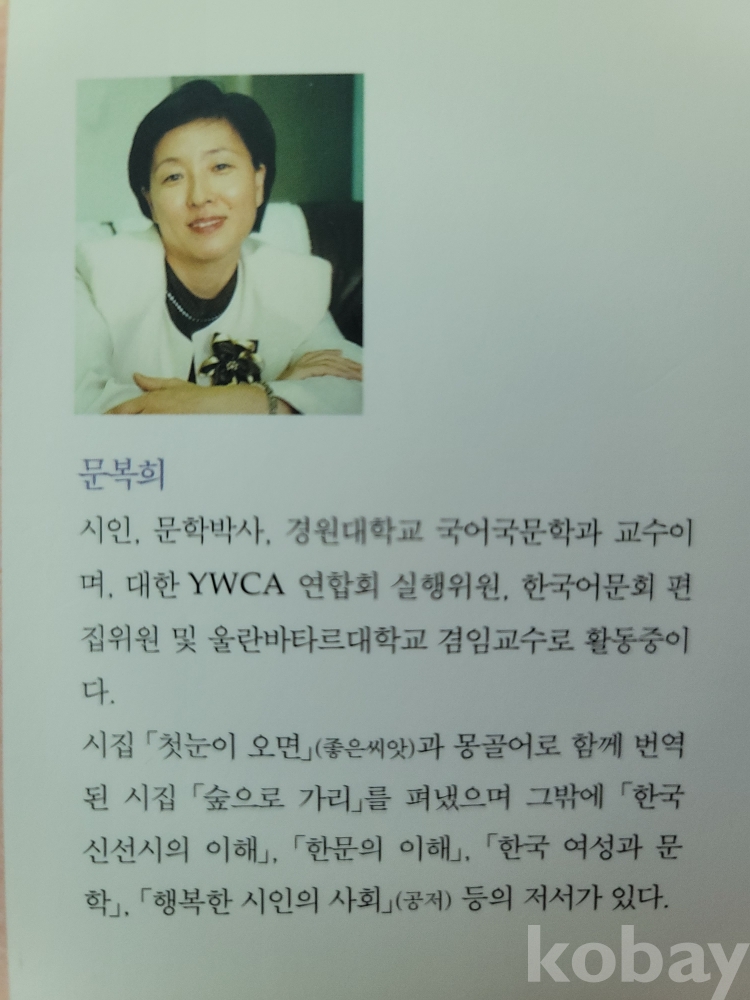 문복희
시인, 문학박사, 경원대학교 국어국문학과 교수이
며, 대한 YWCA 연합회 실행위원, 한국어문회 편
집위원 및 울란바타르대학교 겸임교수로 활동중이
다.
시집 「첫눈이 오면」(좋은씨앗)과 몽골어로 함께 번역
된 시집 「숲으로 가리」를 펴냈으며 그밖에 「한국
신선시의 이해」, 「한문의 이해」, 「한국 여성과 문
학」, 「행복한 시인의 사회」(공저) 등의 저서가 있다.
kobay